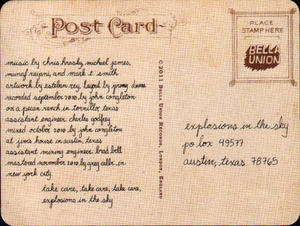 Post Card
PLACE
STAMP HERE
BELLA
UNION
music by chris hrasky, michael james,
munaf rayani, and mark t. smith
artwork by esteban rey, layout by jeremy diama
recorded september 2010 by john congleton
on a pecan ranch in tornillo, texas
assistant engineer charles godfrey
mixed october 2010 by john congleton
at jim's house in austin, texas
assistant mixing engineer brad bell
mastered november 2010 by greg calbi, in
new york city
take care, take care, take care,
explosions in the sky
© 2011 BELLA UNION RECORDS, LONDON, ENGLAND
explosions in the sky
po box 49577
austin, texas 78765